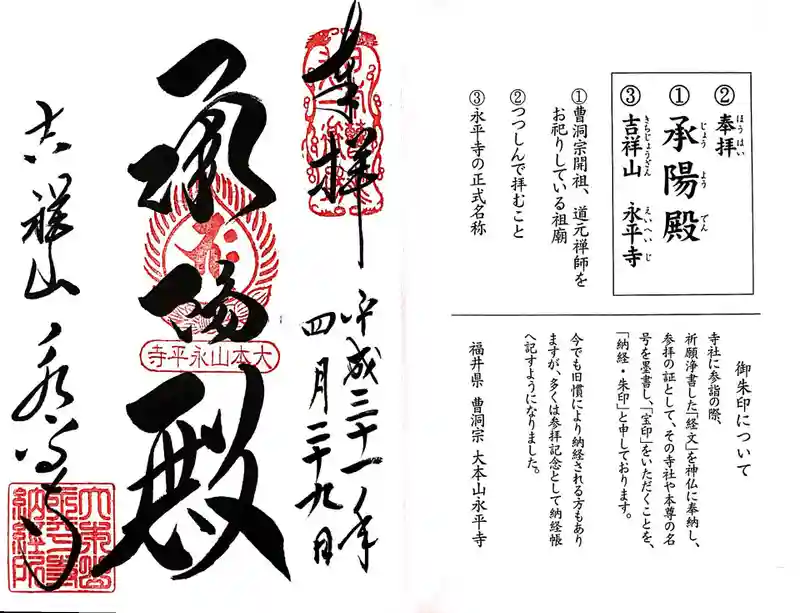 ②奉拝
ほうはい
①承陽殿
じょうようでん
③吉祥山 永平寺
きちじょうざん えいへいじ
①曹洞宗開祖、道元禅師を
お祀りしている祖廟
②つつしんで拝むこと
③永平寺の正式名称
御朱印について
寺社に参詣の際、
祈願浄書した「経文」を神仏に奉納し、
参拝の証として、その寺社や本尊の名
号を墨書し、「宝印」をいただくことを、
「納経・朱印」と申しております。
今でも旧慣により納経される方もあり
ますが、多くは参拝記念として納経帳
へ記すようになりました。
福井県 曹洞宗 大本山永平寺
奉拝
平成三十一年
四月二十九日
承陽殿
大本山永平寺
吉祥山 永平寺
大本山
永平寺
納経所